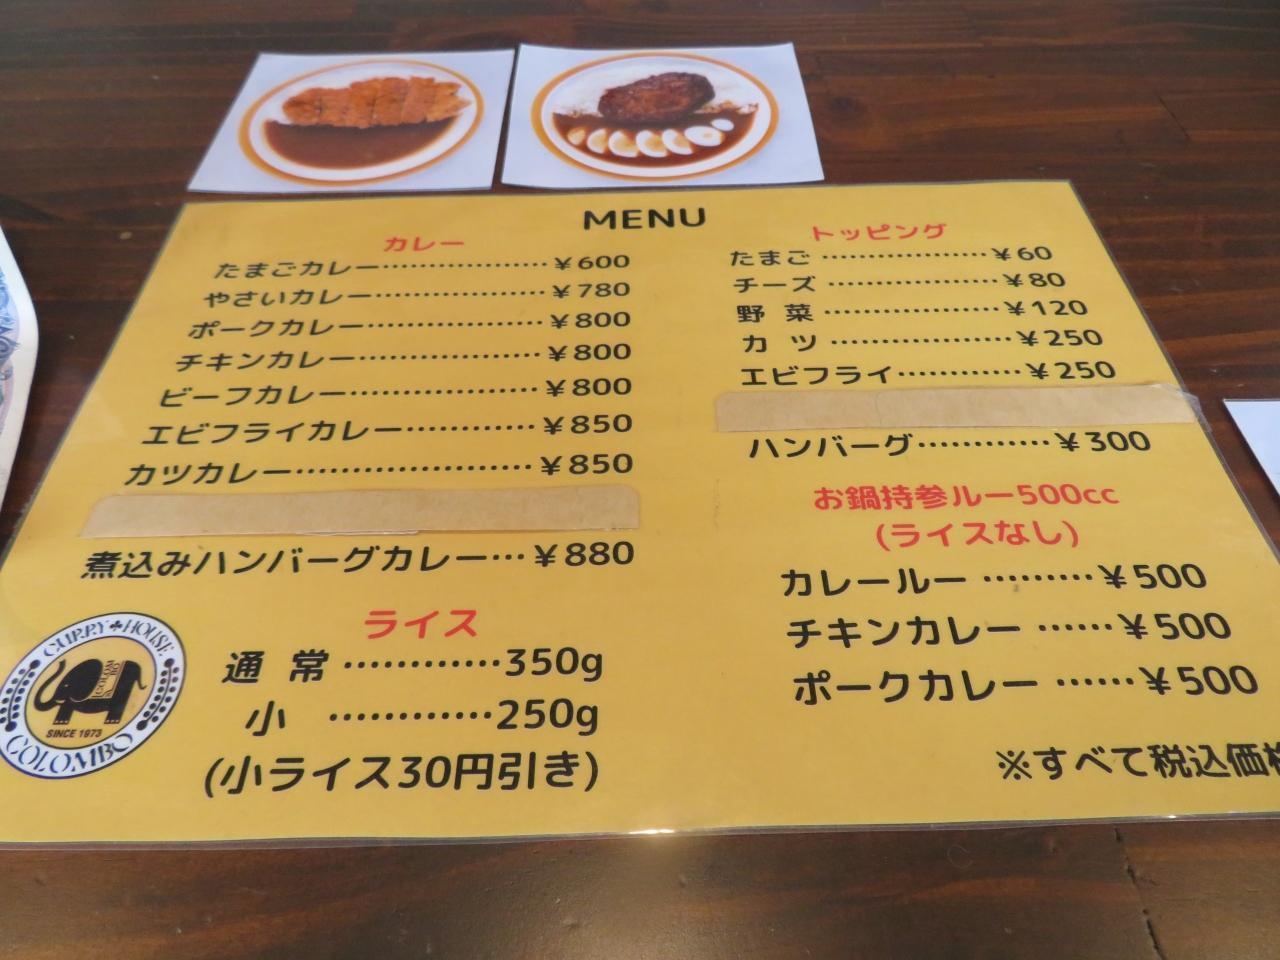 MENU
カレー
たまごカレー………………¥600
やさいカレー………………¥780
ポークカレー………………¥800
チキンカレー………………¥800
ビーフカレー………………¥800
エビフライカレー…………¥850
カツカレー……………………¥850
煮込みハンバーグカレー…¥880
ライス
通 常…………350g
小 …………250g
(小ライス30円引き)
CURRY HOUSE
COLOMBO
SINCE 1973
COLOMBO
トッピング
たまご………………¥60
チーズ………………¥80
野 菜………………¥120
カ ツ………………¥250
エビフライ…………¥250
ハンバーグ…………¥300
お鍋持参ルー500cc
(ライスなし)
カレールー ………¥500
チキンカレー ……¥500
ポークカレー ……¥500
※すべて税込価格